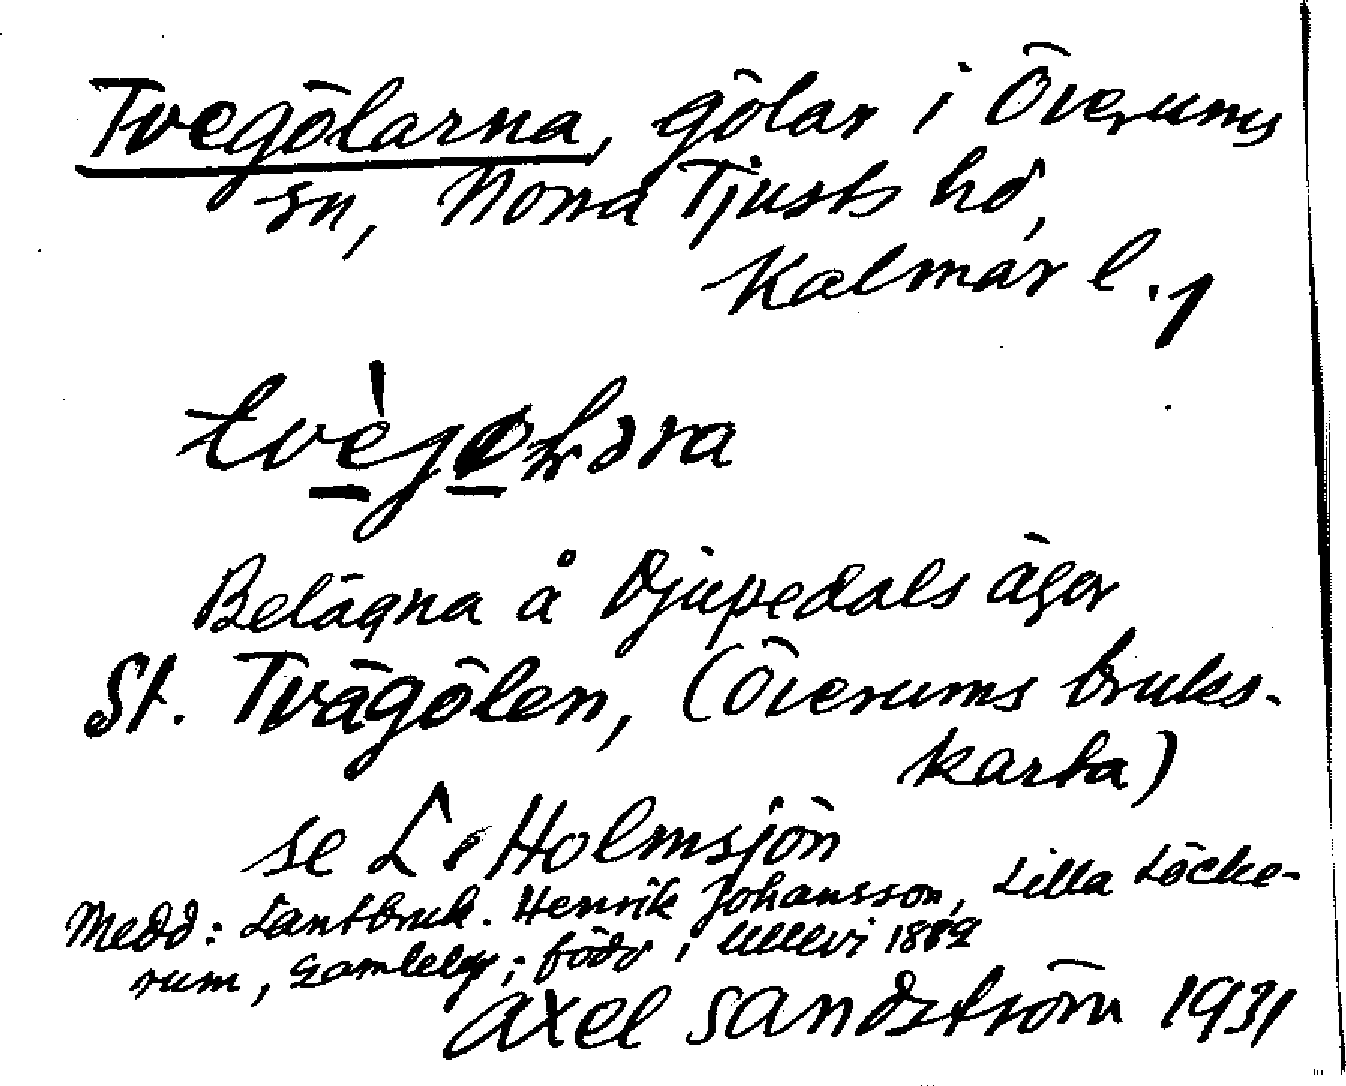 Tvegölarna, gölar i Överums
sn, Norra Tjusts hd,
Kalmar l.
Belägna å Djupedals ägor
St. Tvägölen, (Överums bruks-
karta)
se L. Holmsjön
Medd: Lantbruk. Henrik Johansson, Lilla Löcke-
rum, Gamleby; född i Ullevi 1882
Axel Sandström 1931